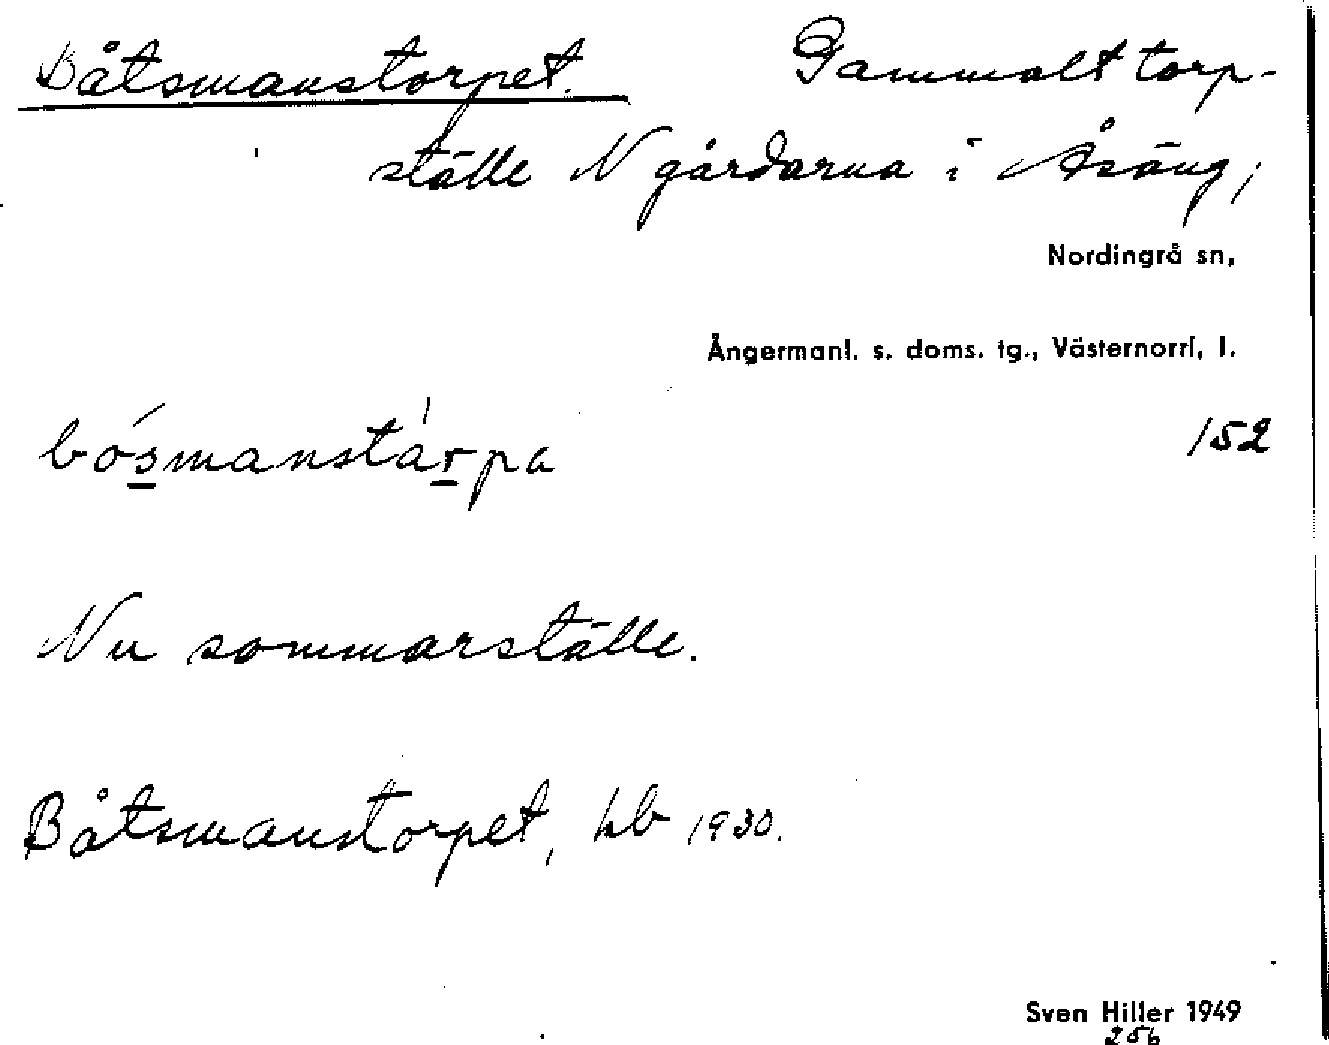 Båtsmanstorpet. Gammalt torp-
ställe N gårdarna i Åsäng,
Nordingrå sn,
Ångermanl. s. doms. tg., Västernorrl. l.
152
bósmanstàrpa
Nu sommarställe.
Båtsmanstorpet, hb 1930.
Sven Hiller 1949
256